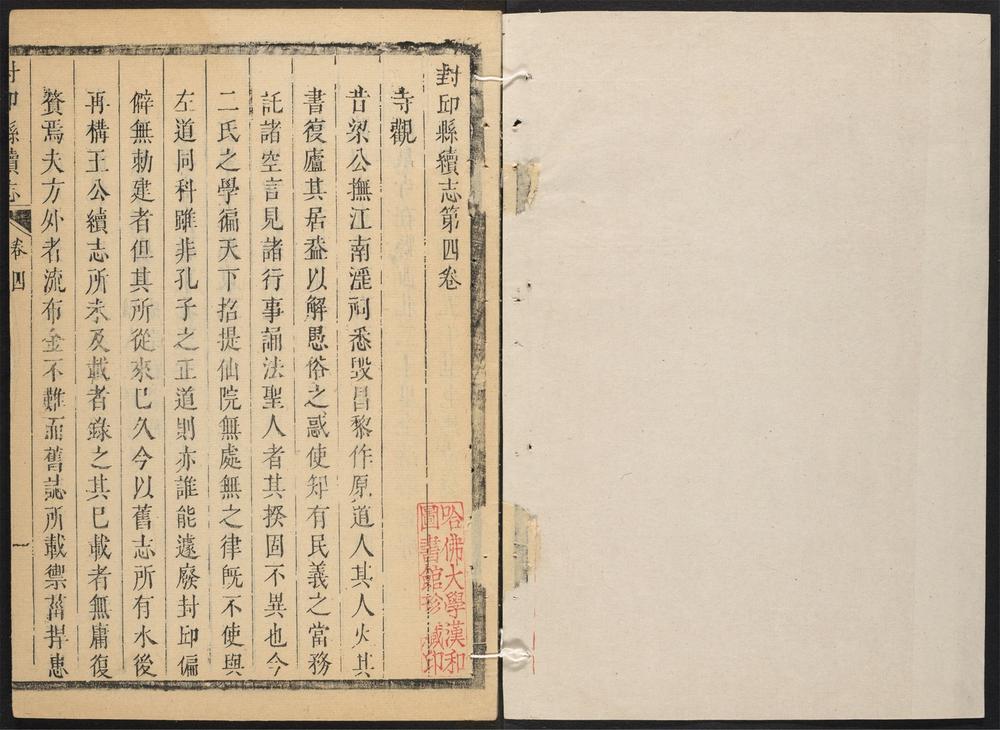 封邱縣續志第四卷
寺觀
昔梁公撫江南滛祠悉毀昌黎作原道人其人火其
書復廬其居葢以解愚俗之惑使知有民義之當務
託諸空言見諸行事誦法聖人者其揆固不異也今
二氏之學徧天下招提仙院無處無之律旣不使與
左道同科雖非孔子之正道則亦誰能遽廢封邱偏
僻無勅建者但其所從來已久今以舊志所有水後
再構王公續志所未及載者錄之其已載者無庸復
贅焉夫方外者流布金不難而舊誌所載禦菑捍患
封邱縣續志
卷四
一
哈佛大學漢和
圖書館珍藏印